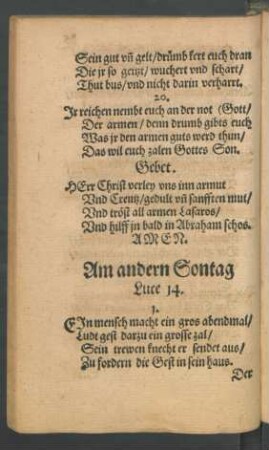 Sein gut vñ gelt/drümb kert euch dran
Die jr so geitzt/wuchert vnd schart/
Thut bus/vnd nicht darin verharrt.
20.
Jr reichen nembt euch an der not (Gott/
Der armen/denn drumb gibts euch
Was jr den armen guts werd thun/
Das wil euch zalen Gottes Son.
Gebet.
HErr Christ verley vns inn armut
Vnd Creutz/gedult vñ sanfften mut/
Vnd tröst all armen Lasaros/
Vnd hilff jn bald in Abraham schos.
AMEN.
Am andern Sontag
Luce 14.
1.
EIn mensch macht ein gros abendmal/
Ludt gest darzu ein grosse zal/
Sein trewen knecht er sendet aus/
Zu fordern die Gest in sein haus.
Der